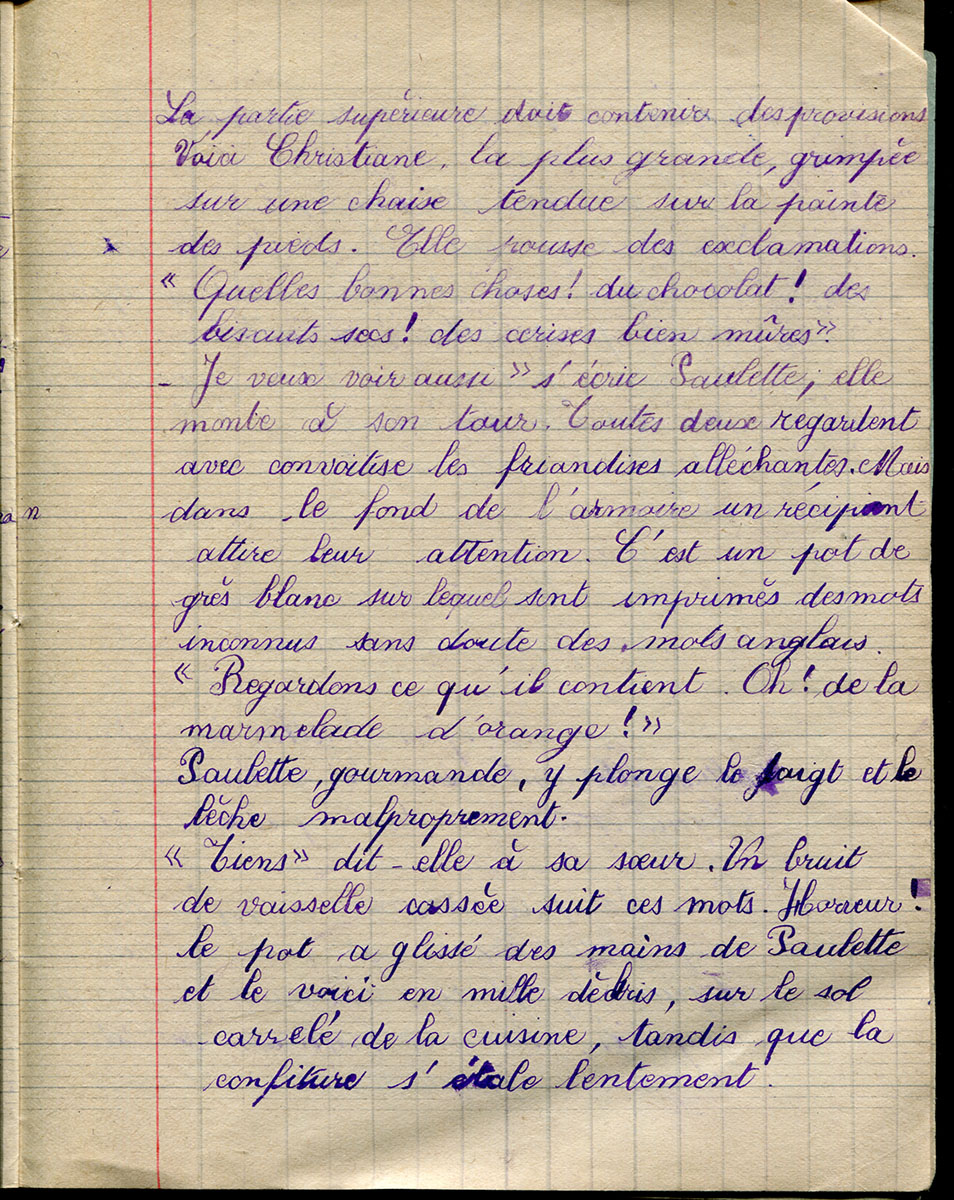 La partie supérieure doit contenir des provisions
Voici Christiane, la plus grande, grimpée
sur une chaise tendue sur la pointe
des pieds. Elle pousse des exclamations.
« Quelles bonnes choses! du chocolat! des
biscuits secs! des cerises bien mûres».
- Je veux voir aussi » s'écrie Paulette, elle
monte à son tour. Toutes deux regardent
avec convoitise les friandises alléchantes. Mais
dans le fond de l'armoire un récipient
attire leur attention. C'est un pot de
grès blanc sur lequel sont imprimés des mots
inconnus sans doute des mots anglais.
« Regardons ce qu'il contient. Oh! de la
marmelade d'orange!»
Paulette, gourmande, y plonge le doigt et le
lèche malproprement.
« Tiens» dit-elle à sa sœur. Un bruit
de vaisselle cassée suit ces mots. Horreur!
le pot a glissé des mains de Paulette
et le voici en mille débris, sur le sol
carrelé de la cuisine, tandis que la
confiture s'étale lentement.